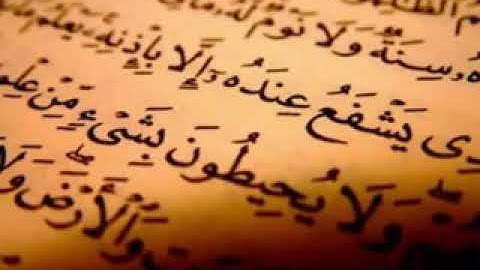 سِنَةٌ وَلَا نَوْمٌ لَهُ
يَشْفَعُ عِندَهُ إِلَّا بِإِذْنِهِ يَعْلَمُ
وَلَا يُحِيطُونَ بِشَىْءٍ مِّنْ عِلْمِ
وَالْأَرْضَ وَلَا